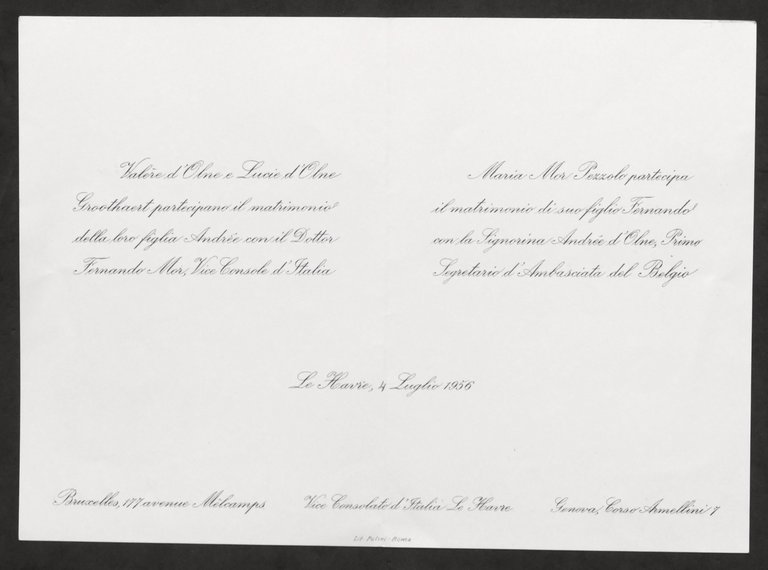 Valère d'Olne e Lucie d'Olne
Groothaert partecipano il matrimonio
della loro figlia Andrée con il Dottor
Fernando Mor, Vice Console d'Italia
Maria Mor Pezzolo partecipa
il matrimonio di suo figlio Fernando
con la Signorina Andrée d'Olne, Primo
Segretario d'Ambasciata del Belgio
Le Havre, 4 Luglio 1956
Bruxelles, 177 avenue Mélcamps
Vice Consolato d'Italia Le Havre
Genova, Corso Armellini 7
Roma